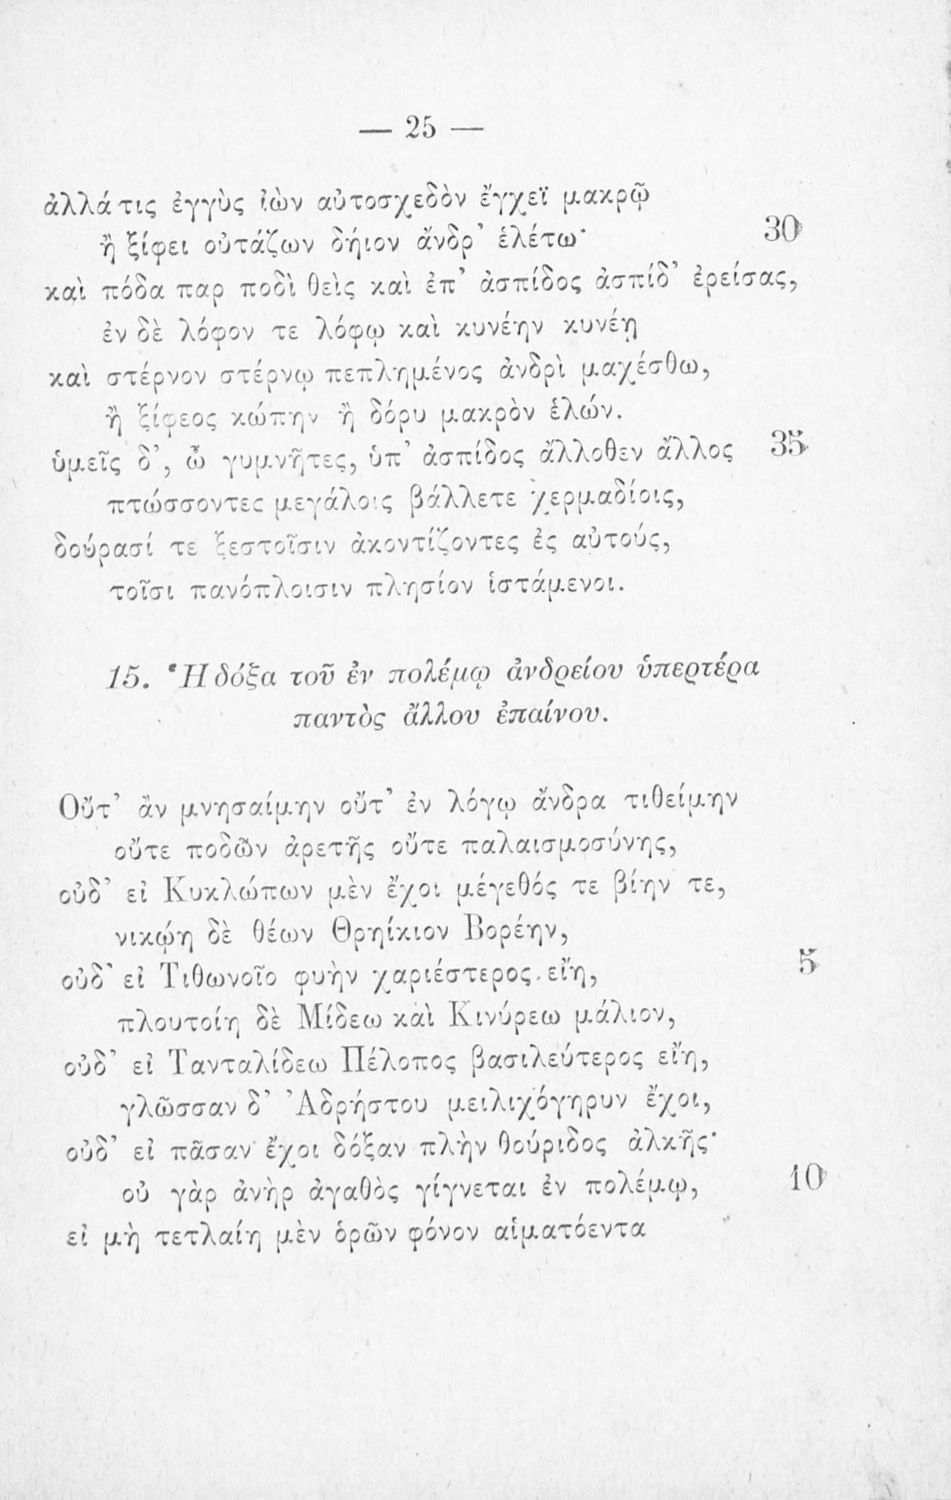 — 25 —
ἀλλά τις ἐγγὺς ἰὼν αὐτοσχεδὸν ἔγχεϊ μακρῷ
ἢ ξίφει οὐτάζων δήιον ἄνδρ’ ἑλέτω· 30
καὶ πόδα παρ ποδὶ θεὶς καὶ ἐπ’ ἀσπίδος ἀσπίδ’ ἐρείσας,
ἐν δὲ λόφον τε λόφῳ καὶ κυνέην κυνέῃ
καὶ στέρνον στέρνῳ πεπλημένος ἀνδρὶ μαχέσθω,
ἢ ξίφεος κώπην ἢ δόρυ μακρὸν ἑλών.
ὑμεῖς δ’, ὦ γυμνῆτες, ὑπ’ ἀσπίδος ἄλλοθεν ἄλλος 35
πτώσσοντες μεγάλοις βάλλετε χερμαδίοις,
δούρασί τε ξεστοῖσιν ἀκοντίζοντες ἐς αὐτούς,
τοῖσι πανόπλοισιν πλησίον ἱστάμενοι.
15. Ἡ δόξα τοῦ ἐν πολέμῳ ἀνδρείου ὑπερτέρα
παντὸς ἄλλου ἐπαίνου.
Οὔτ’ ἂν μνησαίμην οὔτ’ ἐν λόγῳ ἄνδρα τιθείμην
οὔτε ποδῶν ἀρετῆς οὔτε παλαισμοσύνης,
οὐδ’ εἰ Κυκλώπων μὲν ἔχοι μέγεθός τε βίην τε,
νικῴη δὲ θέων Θρηίκιον Βορέην,
οὐδ’ εἰ Τιθωνοῖο φυὴν χαριέστερος εἴη, 5
πλουτοίη δὲ Μίδεω καὶ Κινύρεω μάλιον,
οὐδ’ εἰ Τανταλίδεω Πέλοπος βασιλεύτερος εἴη,
γλῶσσαν δ’ Ἀδρήστου μειλιχόγηρυν ἔχοι,
οὐδ’ εἰ πᾶσαν ἔχοι δόξαν πλὴν θούριδος ἀλκῆς·
οὐ γὰρ ἀνὴρ ἀγαθὸς γίγνεται ἐν πολέμῳ, 10
εἰ μὴ τετλαίη μὲν ὁρῶν φόνον αἱματόεντα